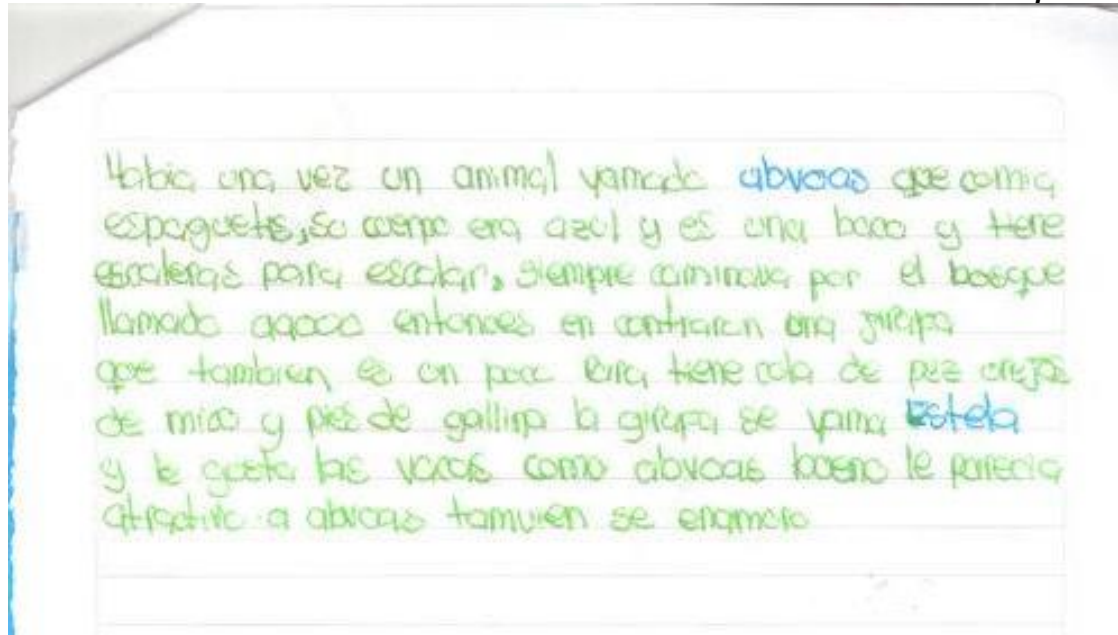 Habia una vez un animal yamado abvacas que comia
espaguetis, su cuerpo era azul y es una baca y tiene
escaleras para escalar, siempre caminava por el bosque
llamado entonces en contraron una jirafa
que tambien es un poco rara tiene cola de pez orejas
de mico y pies de gallina la girafa se yama Estela
y le gusta las vacas como abvacas bueno le parecia
atractivo a abvacas tamvien se enamoro